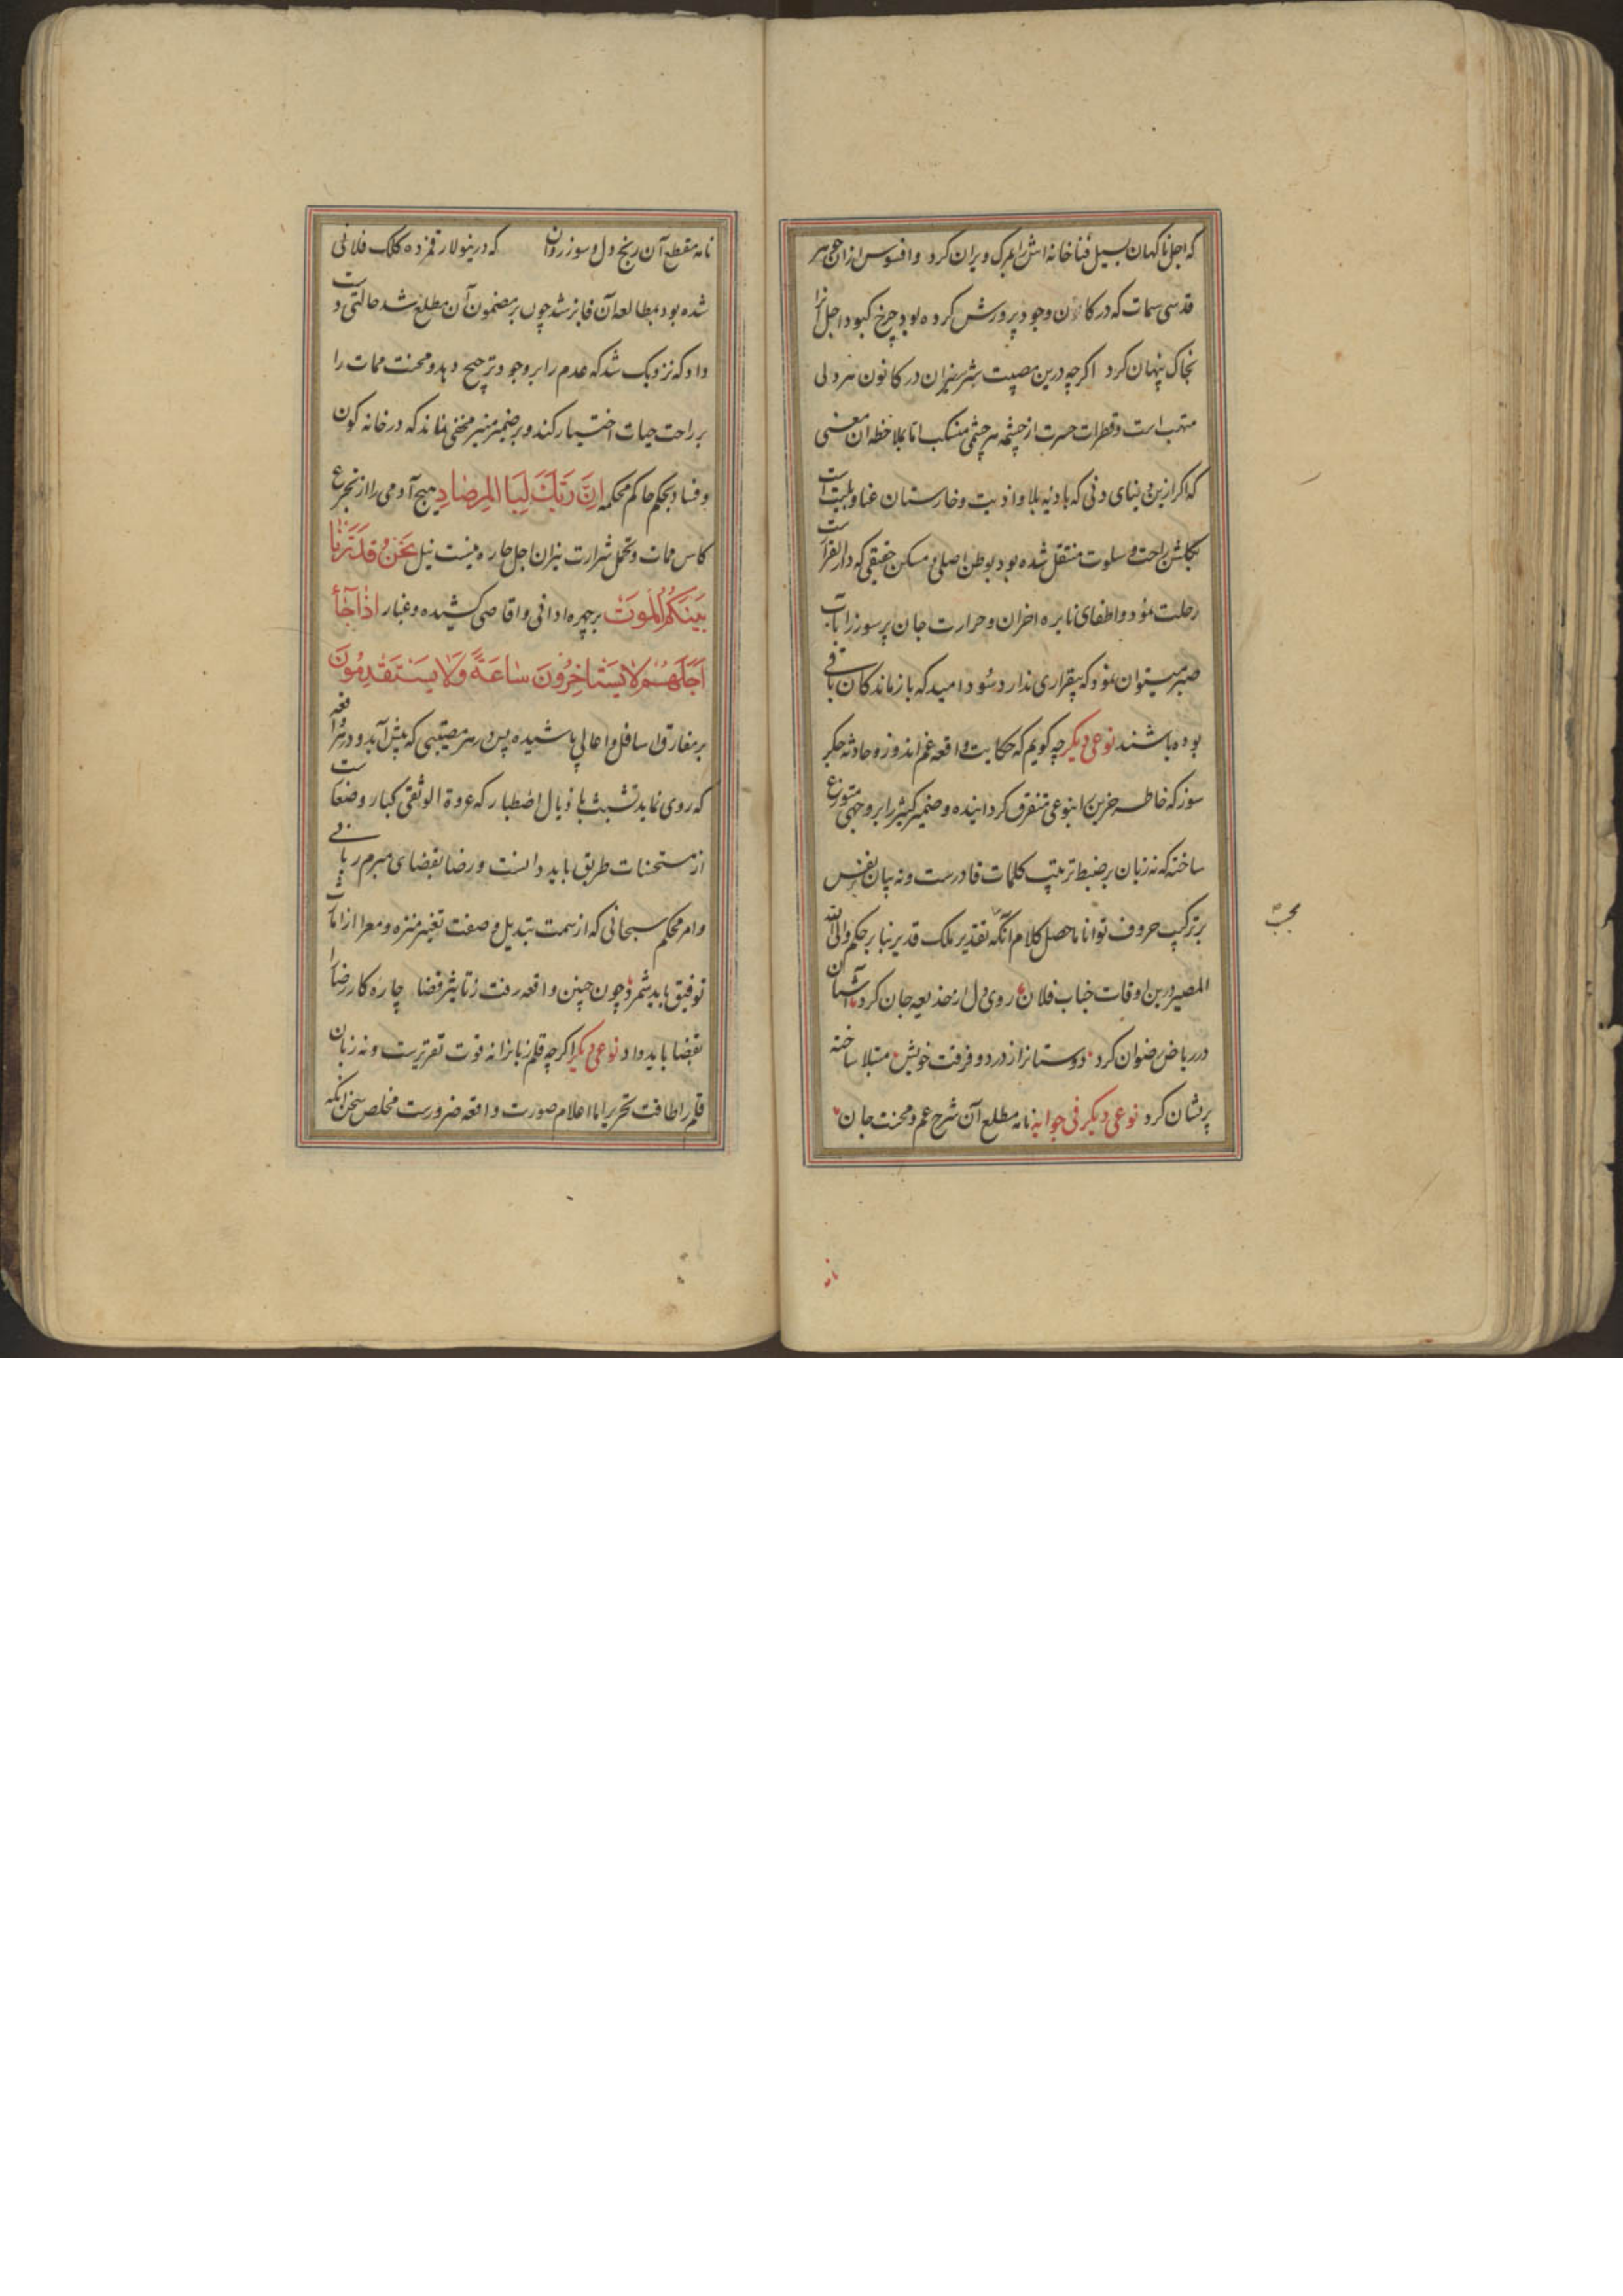 که اجل ناکهان بسیل فنا خانه اش را بمرک ویران کرد و افسوس ازان جوهر
قدسی سمات که در کان وجود پرورش کرده بود چرخ کبود اجل انرا
بخاک پنهان کرد اکرچه درین مصیبت شرر نیران در کانون هر دلی
ملتهب است و قطرات حسرت از چشمه هر چشمی منسکب اما بملاحظه ان معنی
که اکر ازین دنیای دنی که بادیه بلا و اذیت و خارستان عنا و بلیت است
بکلشن راحت و سلوت منتقل شده بود بوطن اصلی و مسکن حقیقی که دار القرار است
رحلت نمود و اطفای نایره احزان و حرارت جان پر سوز را بآب
صبر میتوان نمود که بیقراری ندارد سود امید که بازماندکان باقی
بوده باشند نوعی دیکر چه کویم که حکایت واقعه غم اندوز و حادثه جکر
سوز که خاطر حزین را بنوعی متفرق کردانیده و ضمیر کثیر را بر وجهی متوزع
ساخته که نه زبان بر ضبط ترتیب کلمات قادرست و نه بیان بنفس
بر ترکیب حروف توانا ماحصل کلام آنکه بتقدیر ملک قدیر بنا بر حکم والی الله
المصیر درین اوقات جناب فلان روی دل از خدیعه جان کرد آشیان
در ریاض رضوان کرد دوستانرا از درد و فرقت خویش مبتلا ساخته
پریشان کرد نوعی دیکر فی جوابه نامه مطلع آن شرح غم و محنت جان
نامه
محب
نامه مقطع آن رنج دل و سوز روان که درینولا رقمزده کلک فلانی
شده بود بمطالعه آن فایز شد چون بر مضمون آن مطلع شد حالتی دست
داد که نزدیک شد که عدم را بر وجود ترجیح دهد و محنت ممات را
بر راحت حیات اختیار کند و بر ضمیر منیر مخفی نماند که در خانه کون
و فساد بحکم حاکم محکمه اِنَّ رَبَّكَ لَبِا المِرصَادِ هیچ آدمی را از تجرع
کاس ممات و تحمل شرارت نیران اجل چاره نیست نیل نَحْنُ قَدَّرْنَا
بَيْنَكُمُ الْمَوْتَ بر چهره ادانی و اقاصی کشیده و غبار اذا جَاءَ
اَجَلُهُمْ لا يَسْتَاخِرُونَ سَاعَةً وَلا يَسْتَقْدِمُونَ
بر مفارق اسافل و اعالی پاشیده پس در هر مصیبتی که پیش آید و در هر واقعه
که روی نماید تشبث باذیال اصطبار که عروة الوثقی کبار و ضعفا ست
از مستحسنات طریق باید دانست و رضا بقضای مبرم ربانی
و امر محکم سبحانی که از سمت تبدیل و صفت تغیر منزه و معرا از امارات
توفیق باید شمرد چون چنین واقعه رفت ز تاثیر قضا چاره کار رضا را
بقضا باید داد نوعی دیکر اکرچه قلم زبانرا نه قوت تقریرست و نه زبان
قلم را طاقت تحریر اما اعلام صورت واقعه ضرورست مخلص سخن انکه